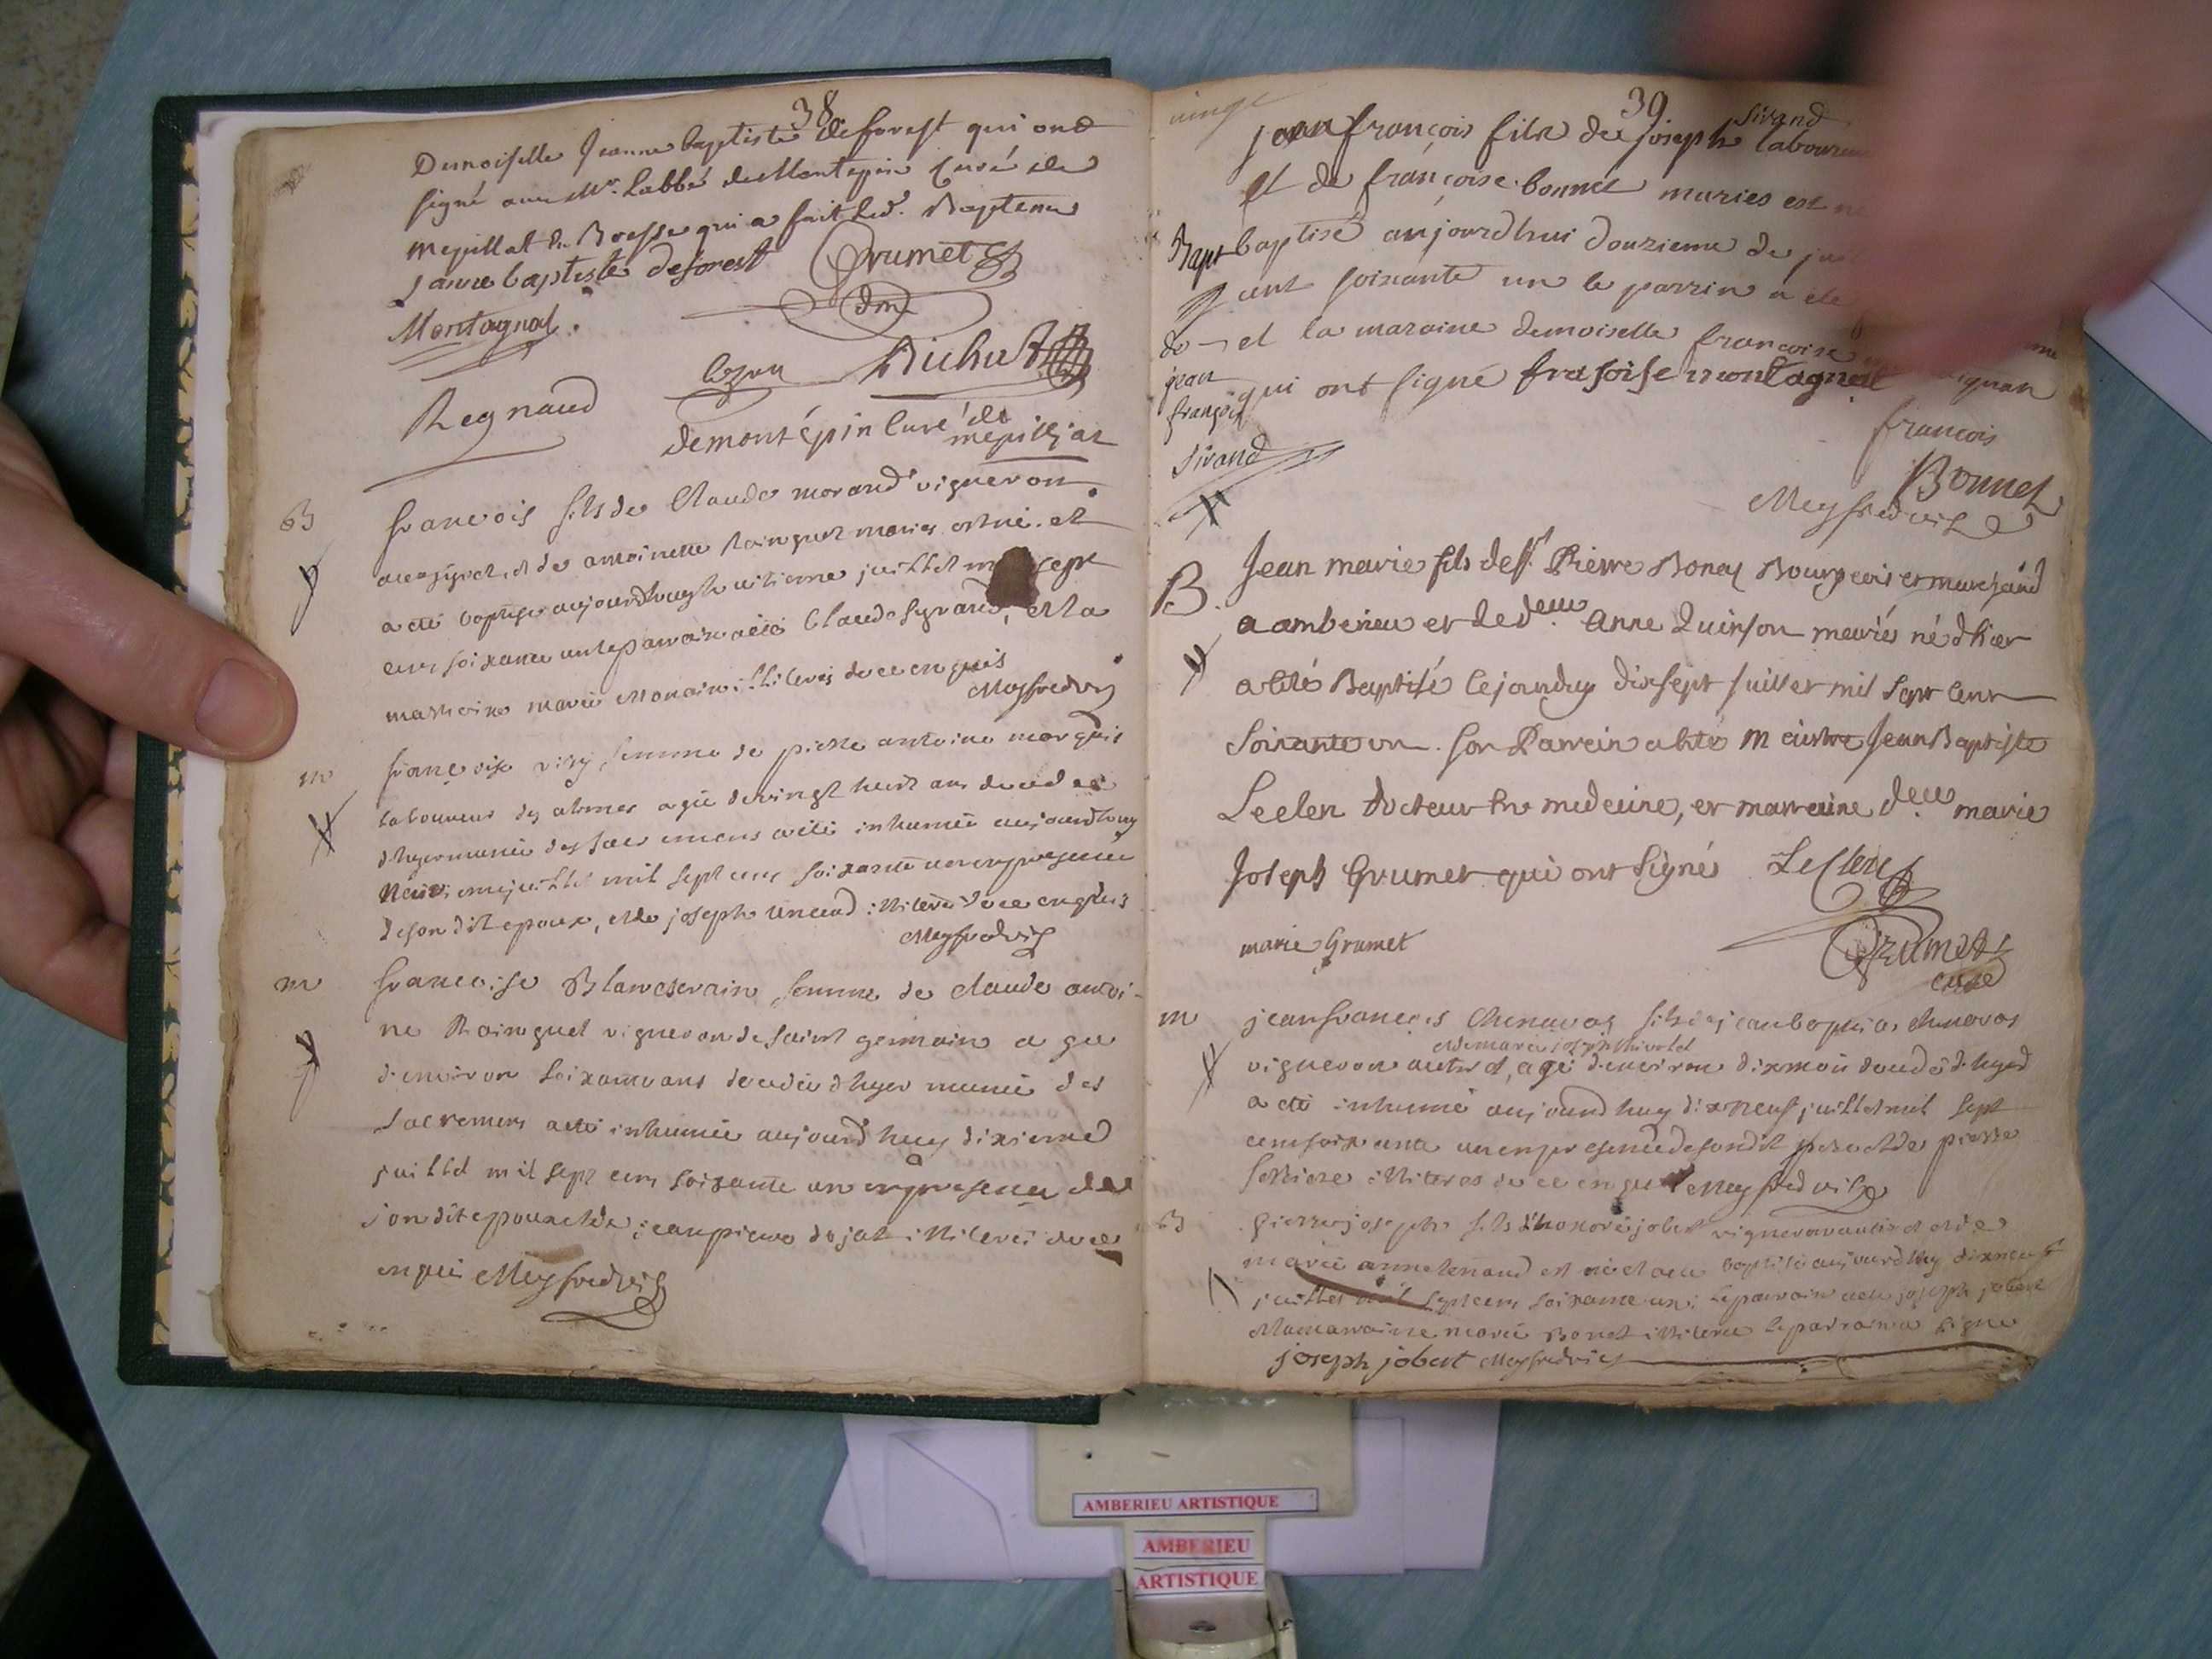 38
Demoiselle Jeanne baptiste deforest qui ond
signé avec Mr. Labbé de Montepin Curé de
mepillat En Bresse qui a fait led. Bapteme
janne baptiste deforest Grumet
Montagnat.
Regnaud
Bichat
demontépin Curé de
mepilliat
B
francois fils de Claude morand vigneron
et de antoinette Rainguet maries est né et
a eté baptisé aujourdhuy huitieme juillet mil sept
cens soixante un le parrain a eté Claude sirand, et la
marraine marie illiteres de ce enquis
Meyfredvis
m
françoise femme de pierre antoine marquis
laboureur des alimes agée de vingt huit ans decedee
dhyer munie des sacremens a eté inhumée aujourdhuy
neuvieme juillet mil sept cens soixante un en presence
de son dit epoux, et de joseph illiteré de ce enquis
Meyfredvis
m
francoise Blancservain femme de claude antoi-
ne Rainguet vigneron de saint germain agee
denviron soixante ans decedée dhyer munie des
sacremens a eté inhumée aujourdhuy dixieme
juillet mil sept cens soixante un en presence de
son dit epoux et de jean pierre dujat illiterés de ce
enquis Meyfredvis
39
jean françois fils de joseph sirand laboureur
et de françoise bonnet maries est né
Bapt
baptisé aujourdhui douzieme de
cent soixante un le parrin a eté
de
et la maraine demoiselle francoise
jean
françois
sirand
qui ont signé fransoise montagnat
francois
Bonnet
Meyfredvis
B.
Jean marie fils de Sr. Pierre Bonet Bourgeois et marchand
a amberieu et de delle. Anne Quinson mariés né d'hier
a eté Baptisé le jourduy dixsept Juillet mil Sept Cent
Soixante un. son Parrein a eté Maistre Jean Baptiste
Leclerc docteur En medecine, et marreine delle. marie
Joseph Grumet qui ont signés LeClerc
marie Grumet
Grumet
curé
m
jean françois Chenavas fils de jean baptiste chenavas
et de marie joseph
vigneron autiret, agé denviron dix mois decedé dhyer
a eté inhumé aujourdhuy dix neuf juillet mil sept
cens soixante un en presence de son dit pere et de pierre
illiteres de ce enquis Meyfredvis
B
pierre joseph fils d'honoré jobert vigneron autiret et de
marie anne tenand est né et a eté baptisé aujourdhuy dixneuf
juillet mil sept cens soixante un: le parrain a eté joseph jobert
et la marraine marie Bonet illiteree le parrain a signe
joseph jobert Meyfredvis
AMBERIEU ARTISTIQUE
AMBERIEU
ARTISTIQUE